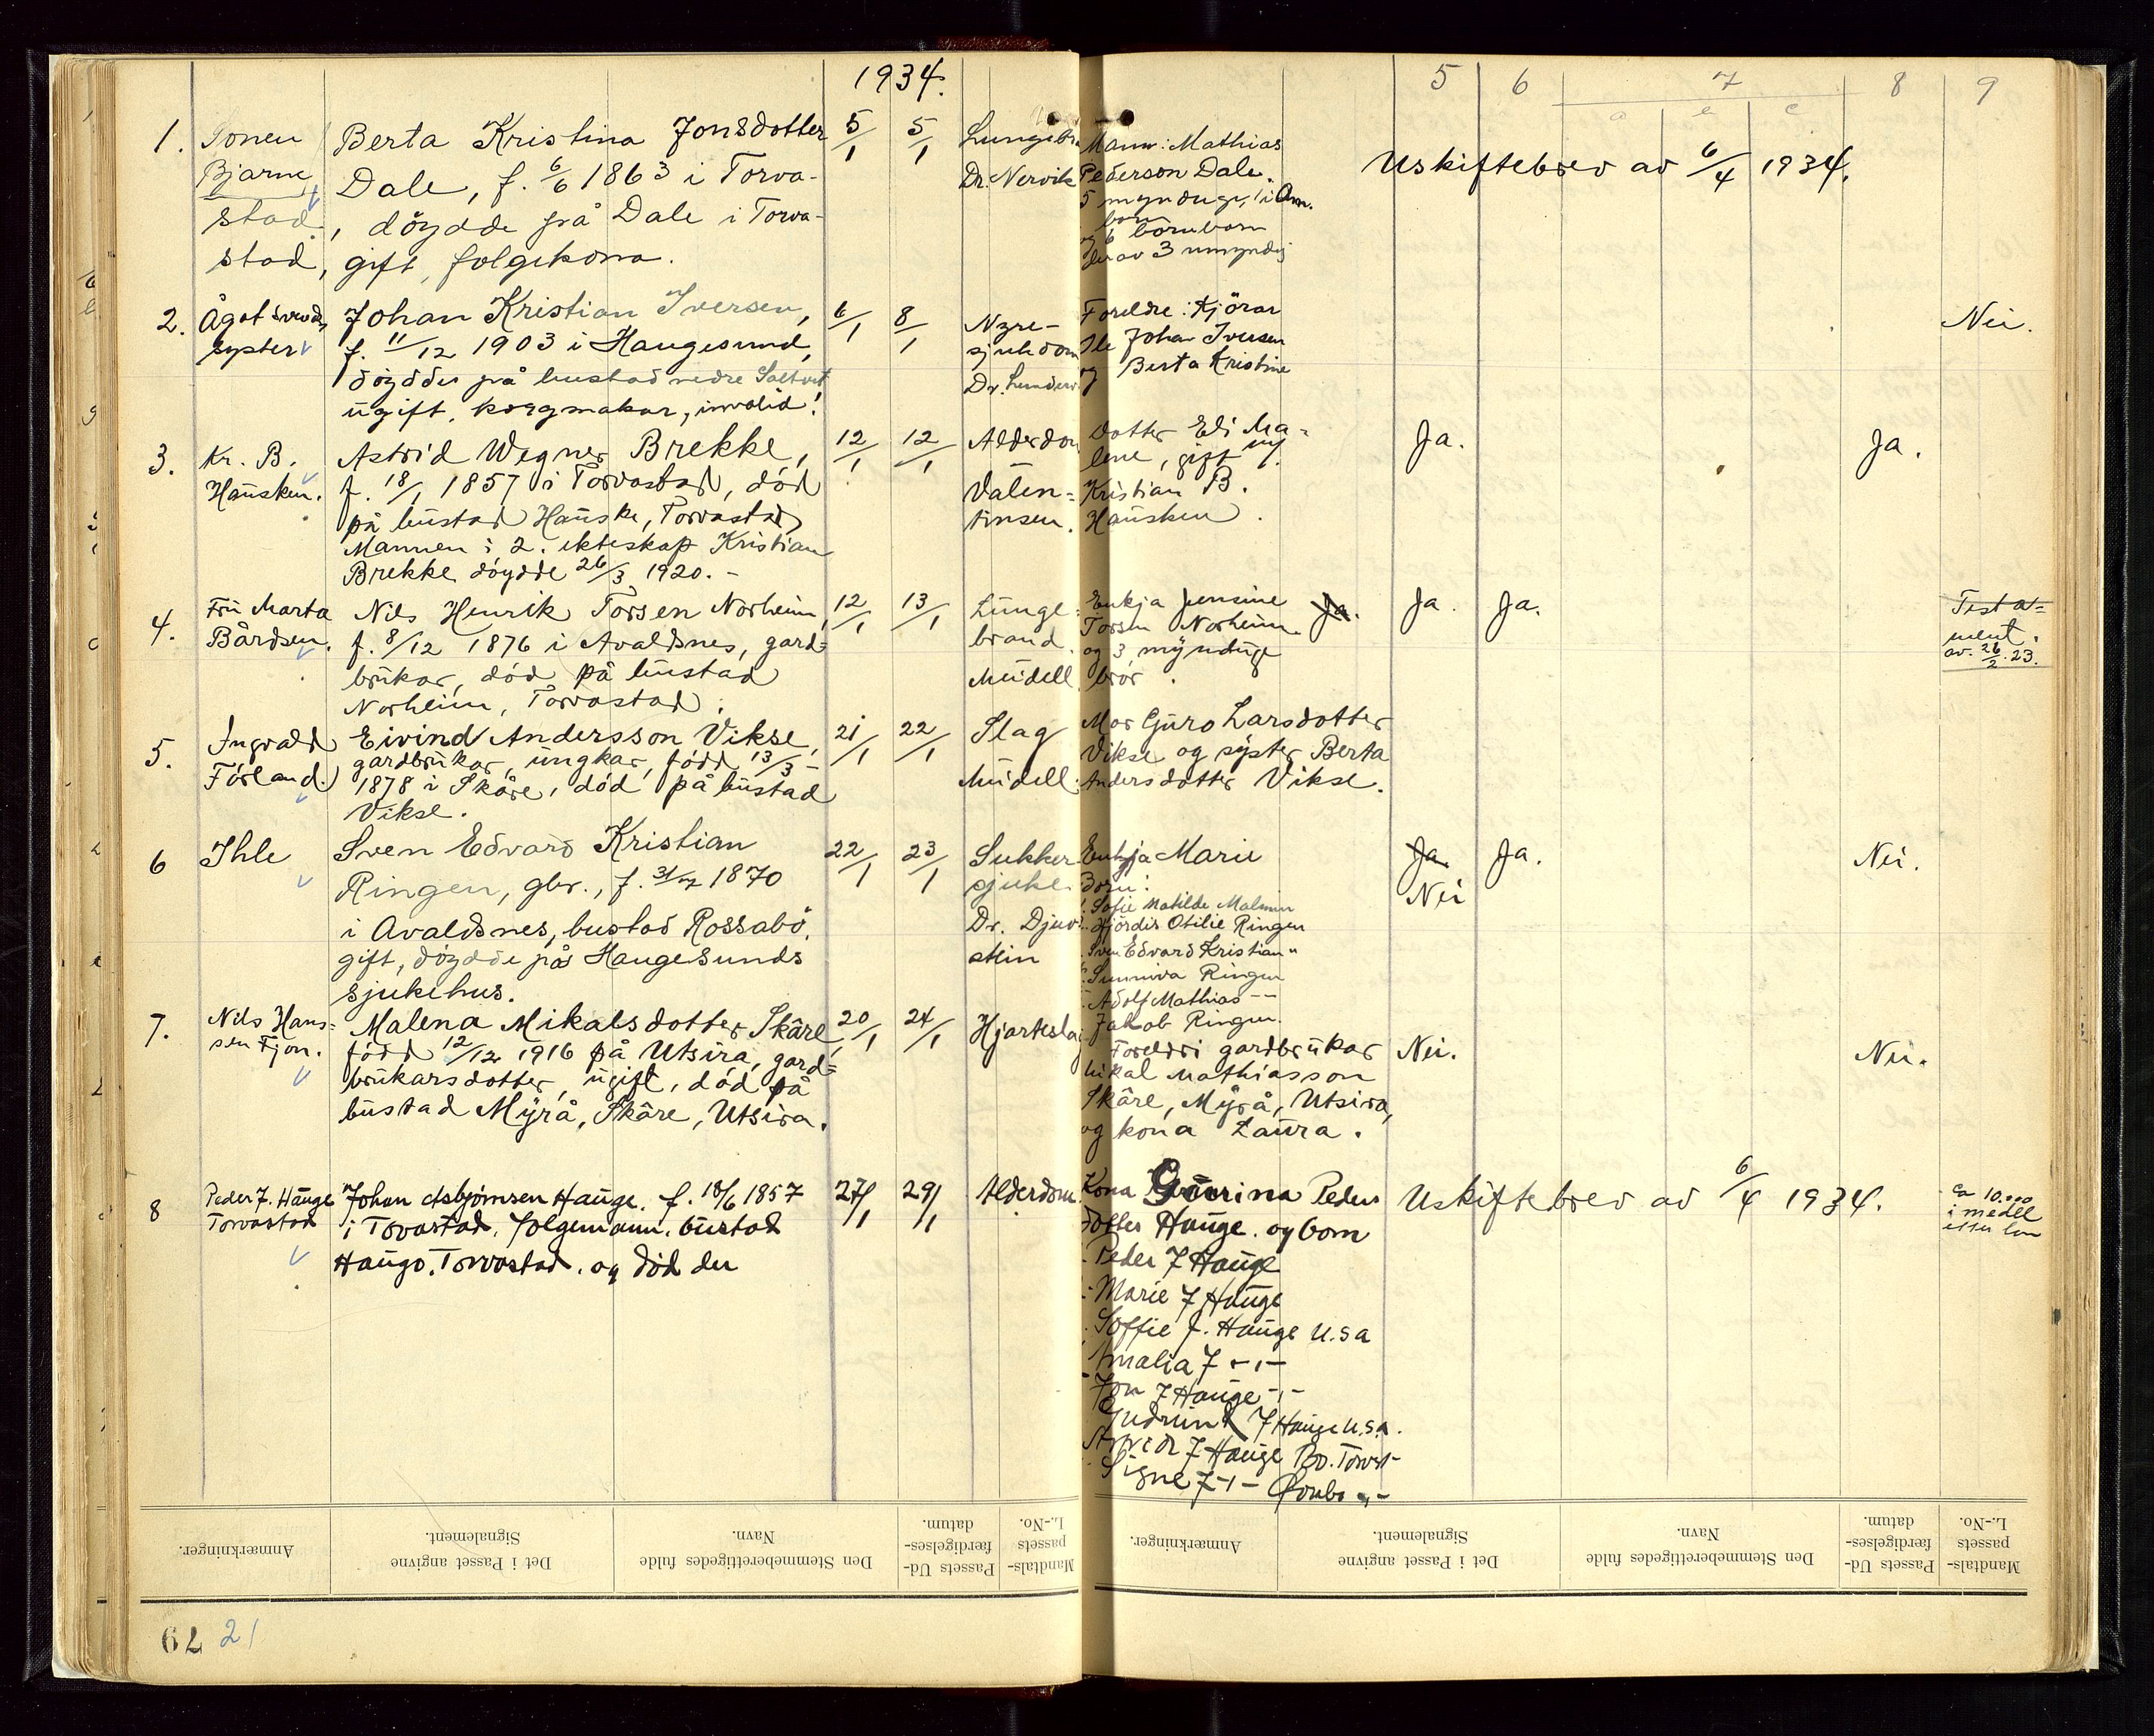 1934.
5 6 7 8 9
a c
1. Sonen
Bjarne
stad.
stad,
Berta Kristina Jonsdotter
Dale, f. 6/6 1863 i Torva-
, döydde på Dale i Torva-
gift, folgekona.
5/1 5/1
Dr. Nervik
Mann: Mathias
Pederson Dale.
5 mynduge, 1 i Am.
born
og 6 borneborn
derav 3 umyndig
Uskiftebrev av 6/4 1934.
2. Ågot
syster
Johan Kristian Iversen,
f. 11/12 1903 i Haugesund,
döydde på bustad nedre Saltvet
ugift, korgmakar, invalid.
6/1 8/1
Nyre-
sjukdom
Foreldre: Kjörar
Ole Johan Iversen
og Berta Kristine
Nei.
3. Kr. B.
Hausken.
Astrid Wegner Brekke,
f. 18/1 1857 i Torvastad, död
på bustad Hauske, Torvastad
Mannen i 2. ekteskap Kristian
Brekke döydde 26/3 1920. -
12/1 12/1
Alderdom
Valen=
tinsen.
Dotter Eli Ma=
lene, gift m/
Kristian B.
Hausken.
Ja. Ja.
4. Fru Marta
Bårdsen.
Nils Henrik Torsen Norheim,
f. 8/12 1876 i Avaldsnes, gard=
brukar, död på bustad
Norheim, Torvastad.
12/1 13/1
Lunge=
brand.
Mudell.
Enkja Jensine
Torsen Norheim.
og 3 myndige
brör.
Ja. Ja. Ja.
Testa=
ment.
av. 26/2.23.
5. Ingvald
Förland.
Eivind Andersson Vikse,
gardbrukar, ungkar, född 13/3 -
1878 i Skåre, död på bustad
Vikse.
21/1 22/1
Slag
Mudell.
Mor Guro Larsdotter
Vikse og syster Berta
Andersdotter Vikse.
6 Ihle
Sven Edvard Kristian
Ringen, gbr., f. 31/7 1870
i Avaldsnes, bustad Rossabö,
gift, döydde på Haugesunds
sjukehus.
22/1 23/1
Sukker
sjuke.
Dr. Djuv
stein
Enkja Marie
Born:
Sofie Matilde
Hjördis Otilie Ringen
Sven Edvard Kristian "
Sunniva Ringen
Adolf Mathias - -
Jakob Ringen.
Ja. Ja.
Nei
Nei.
7. Nils Hans=
sen Fjon.
Malena Mikalsdotter Skåre,
född 12/12 1916 på Utsira, gard=
brukarsdotter, ugift, död på
bustad Myrå, Skåre, Utsira.
20/1 24/1
Hjarteslag
Foreldri gardbrukar
Mikal Mathiasson
Skåre, Myrå, Utsira,
og kona Laura.
Nei. Nei.
8 Peder J. Hauge
Torvastad
Johan Asbjörnsen Hauge. f. 18/6 1857
i Torvastad. folgemann. bustad
Hauge. Torvastad. og död der
27/1 29/1
Alderdom.
Kona Gurina Peders
dotter Hauge. og born
Peder J Hauge
Marie J Hauge
Soffie J. Hauge U.S.a
Amalia J - " -
Jon J Hauge - " -
Gudrun J Hauge U.S.A.
J Hauge Bo. Torvst-
Signe J - " -
Uskiftebrev av 6/4 1934.
ca 10.000
i medel
Anmærkninger.
Det i Passet angivne
Signalement.
Den Stemmeberettigedes fulde
Navn.
Passets Ud-
færdigelses-
datum.
Mandtals-
passets
L.-No.
Anmærkninger.
Det i Passet angivne
Signalement.
Den Stemmeberettigedes fulde
Navn.
Passets Ud-
færdigelses-
datum.
Mandtals-
passets
L.-No.
62 21